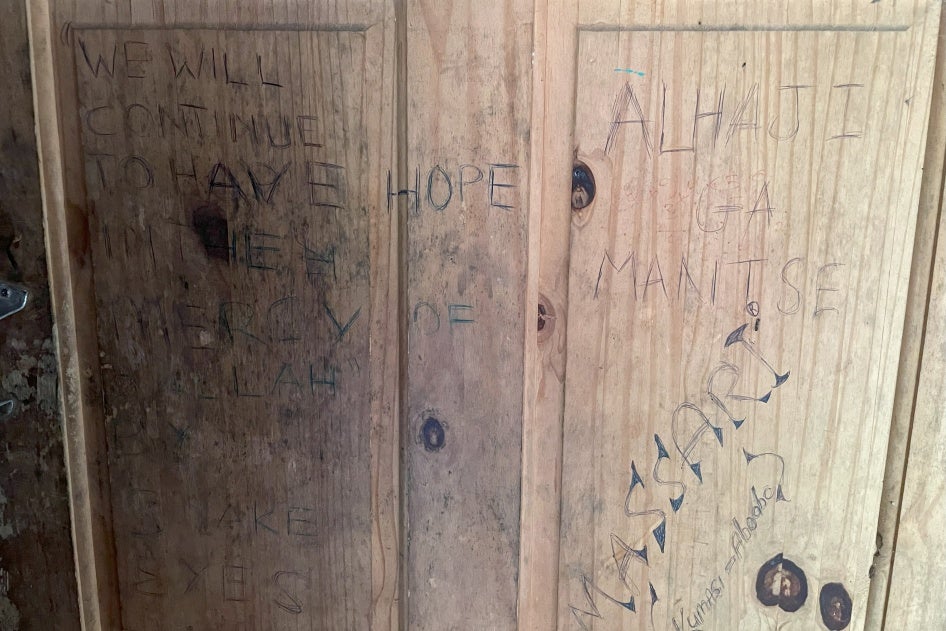 WE WILL
CONTINUE
TO HAVE HOPE
IN THE
MERCY OF
ALLAH"
BY
EYES
ALHAJI
GA
MANTSE
MASSARI
KUMASI = Aboabo